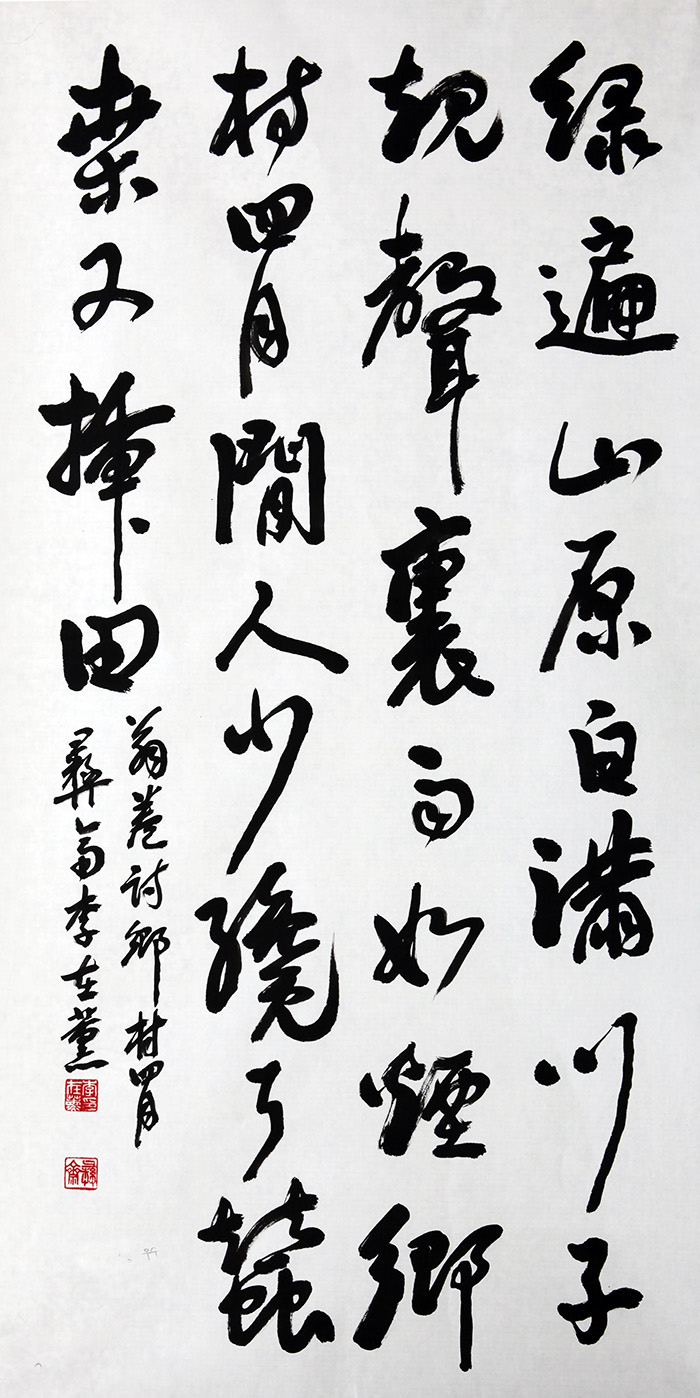 綠遍山原白滿川子
規聲裏雨如煙鄉
村四月閒人少纔了蠶
桑又插田
翁卷詩鄉村四月
彝齋李在薰